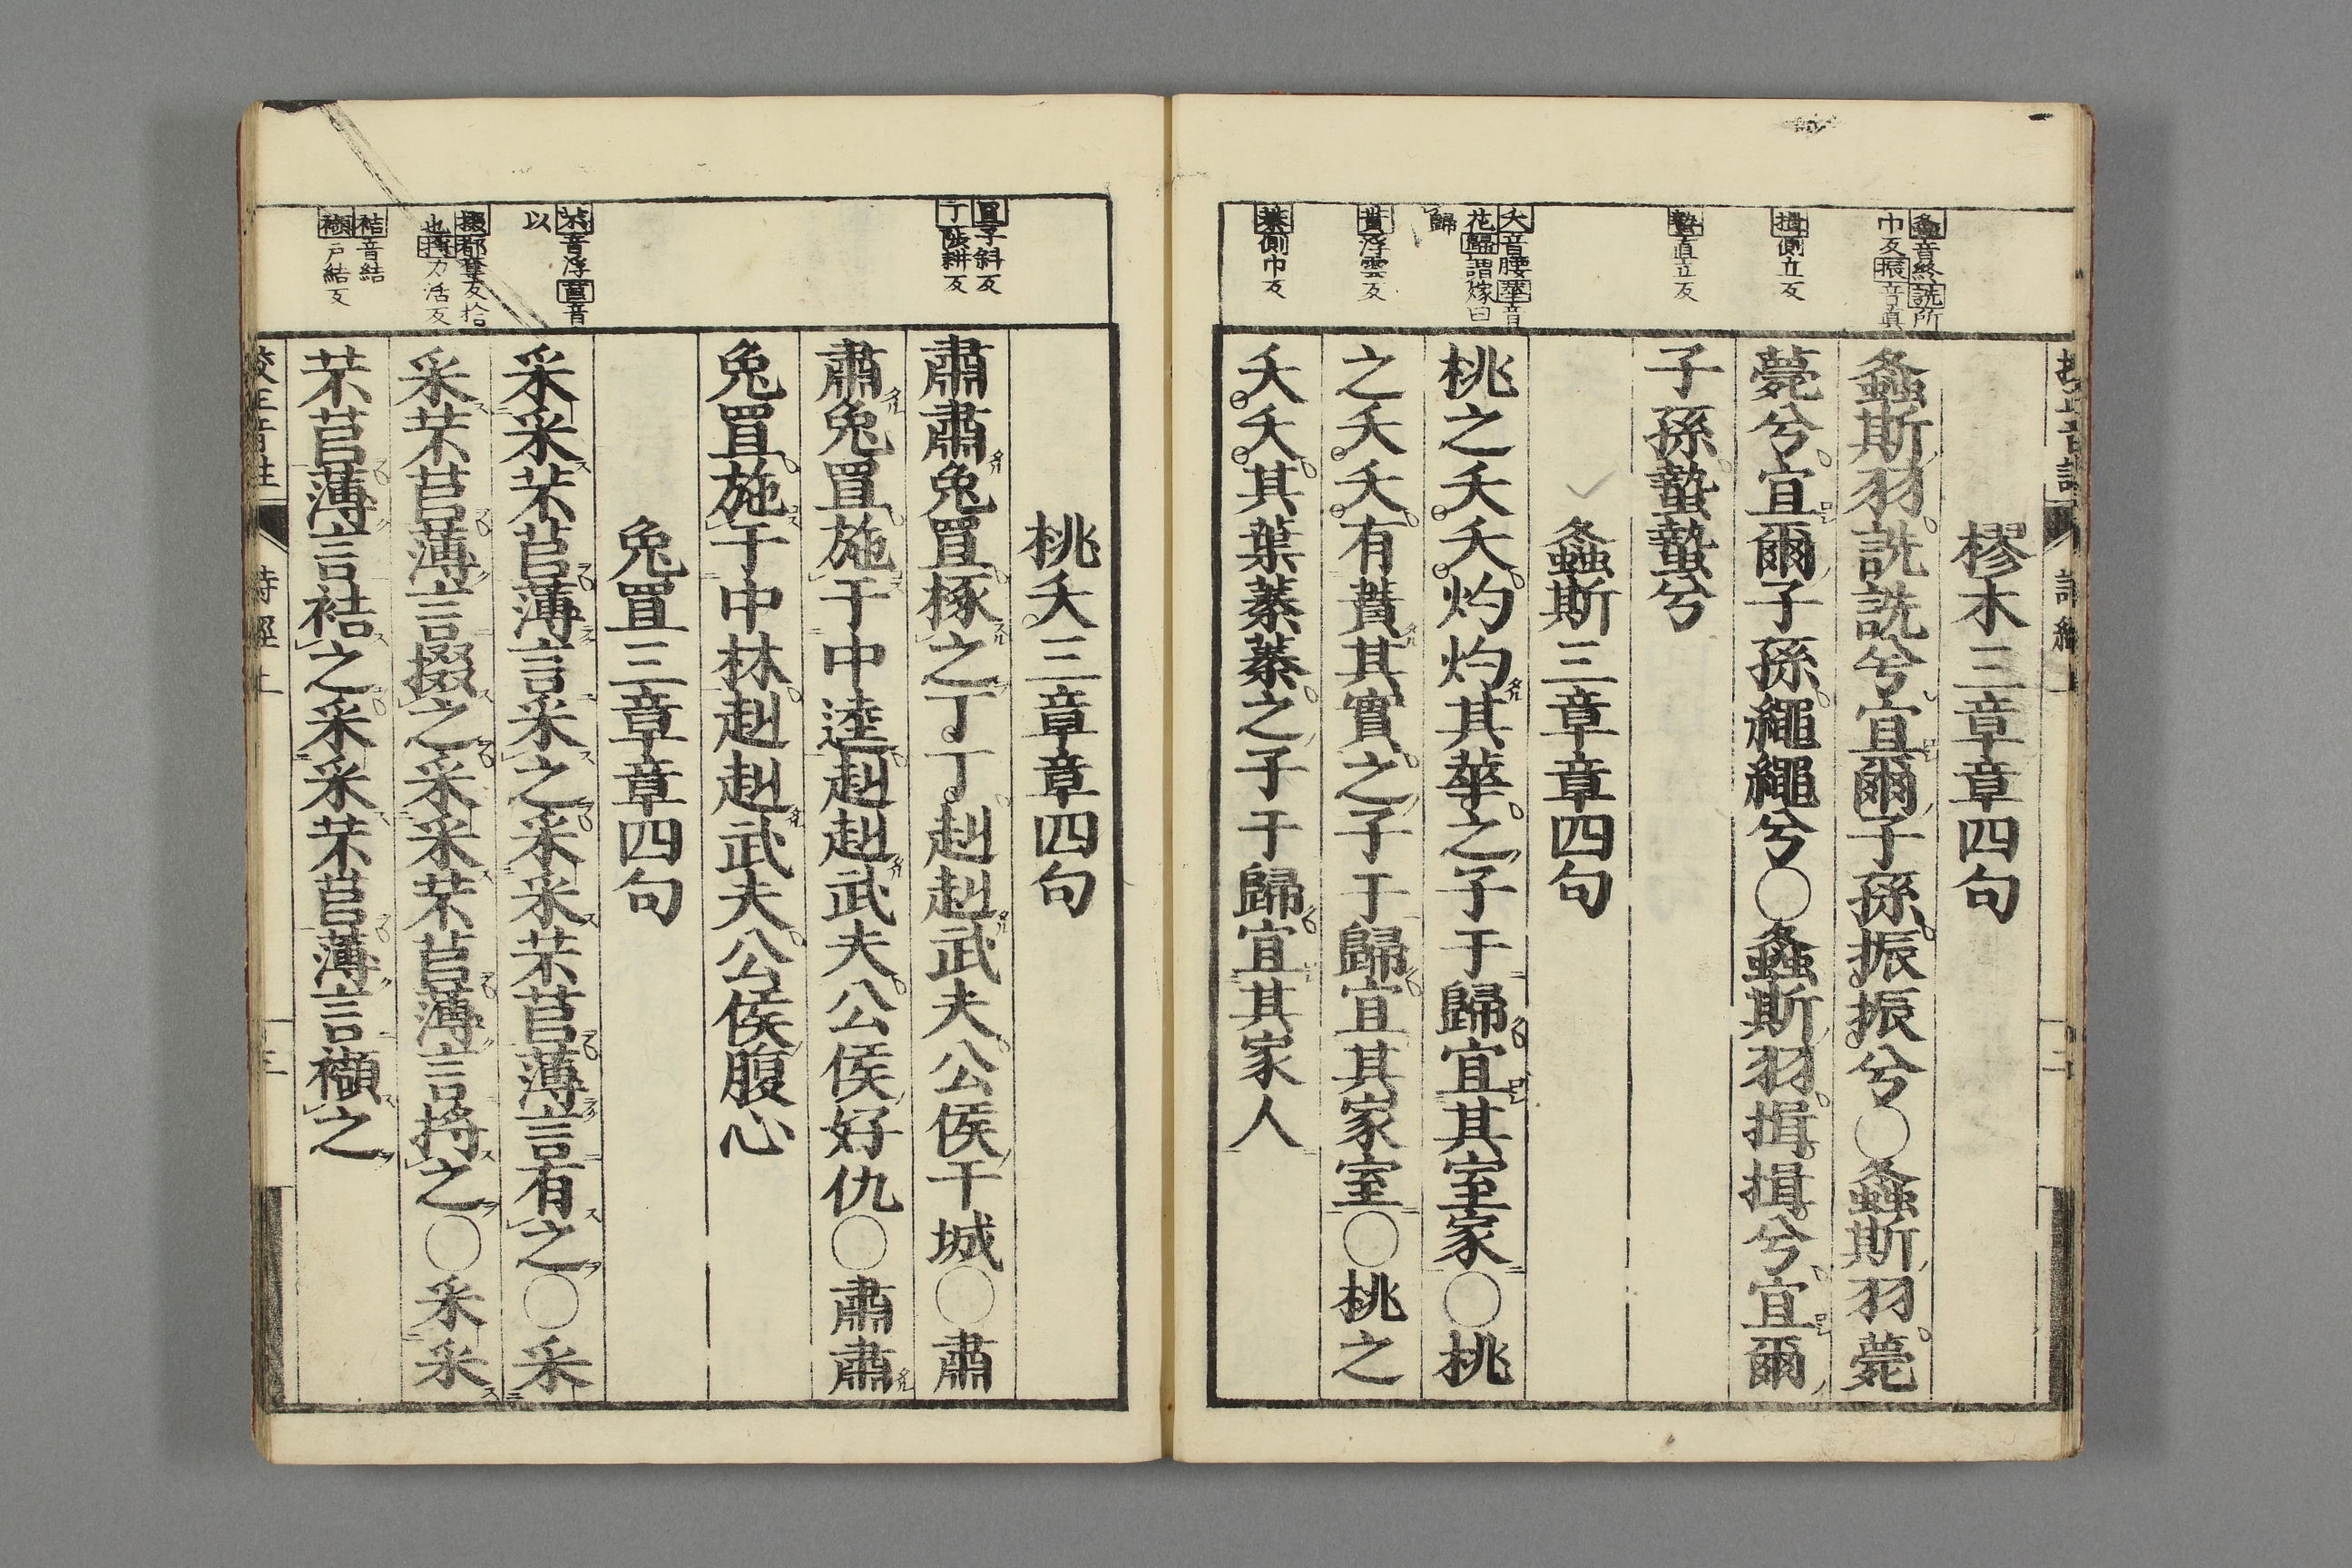 樛木三章章四句
螽斯羽詵詵兮宜爾子孫振振兮〇螽斯羽薨
薨兮宜爾子孫繩繩兮〇螽斯羽揖揖兮宜爾
子孫蟄蟄兮
螽斯三章章四句
桃之夭夭灼灼其華之子于歸宜其室家〇桃
之夭夭有蕡其實之子于歸宜其家室〇桃之
夭夭其葉蓁蓁之子于歸宜其家人
螽音終詵所
巾反振音眞
揖側立反
蟄直立反
夭音腰華音
花歸謂嫁曰
歸
蕡浮雲反
蓁側巾反
桃夭三章章四句
肅肅兔罝椓之丁丁赳赳武夫公侯干城〇肅
肅兔罝施于中逵赳赳武夫公侯好仇〇肅肅
兔罝施于中林赳赳武夫公侯腹心
兔罝三章章四句
采采芣苢薄言采之采采芣苢薄言有之〇采
采芣苢薄言掇之采采芣苢薄言捋之〇采采
芣苢薄言袺之采采芣苢薄言襭之
罝子斜反
丁陟耕反
芣音浮苢音
以
掇都奪反拾
也捋力活反
袺音結
襭戸結反